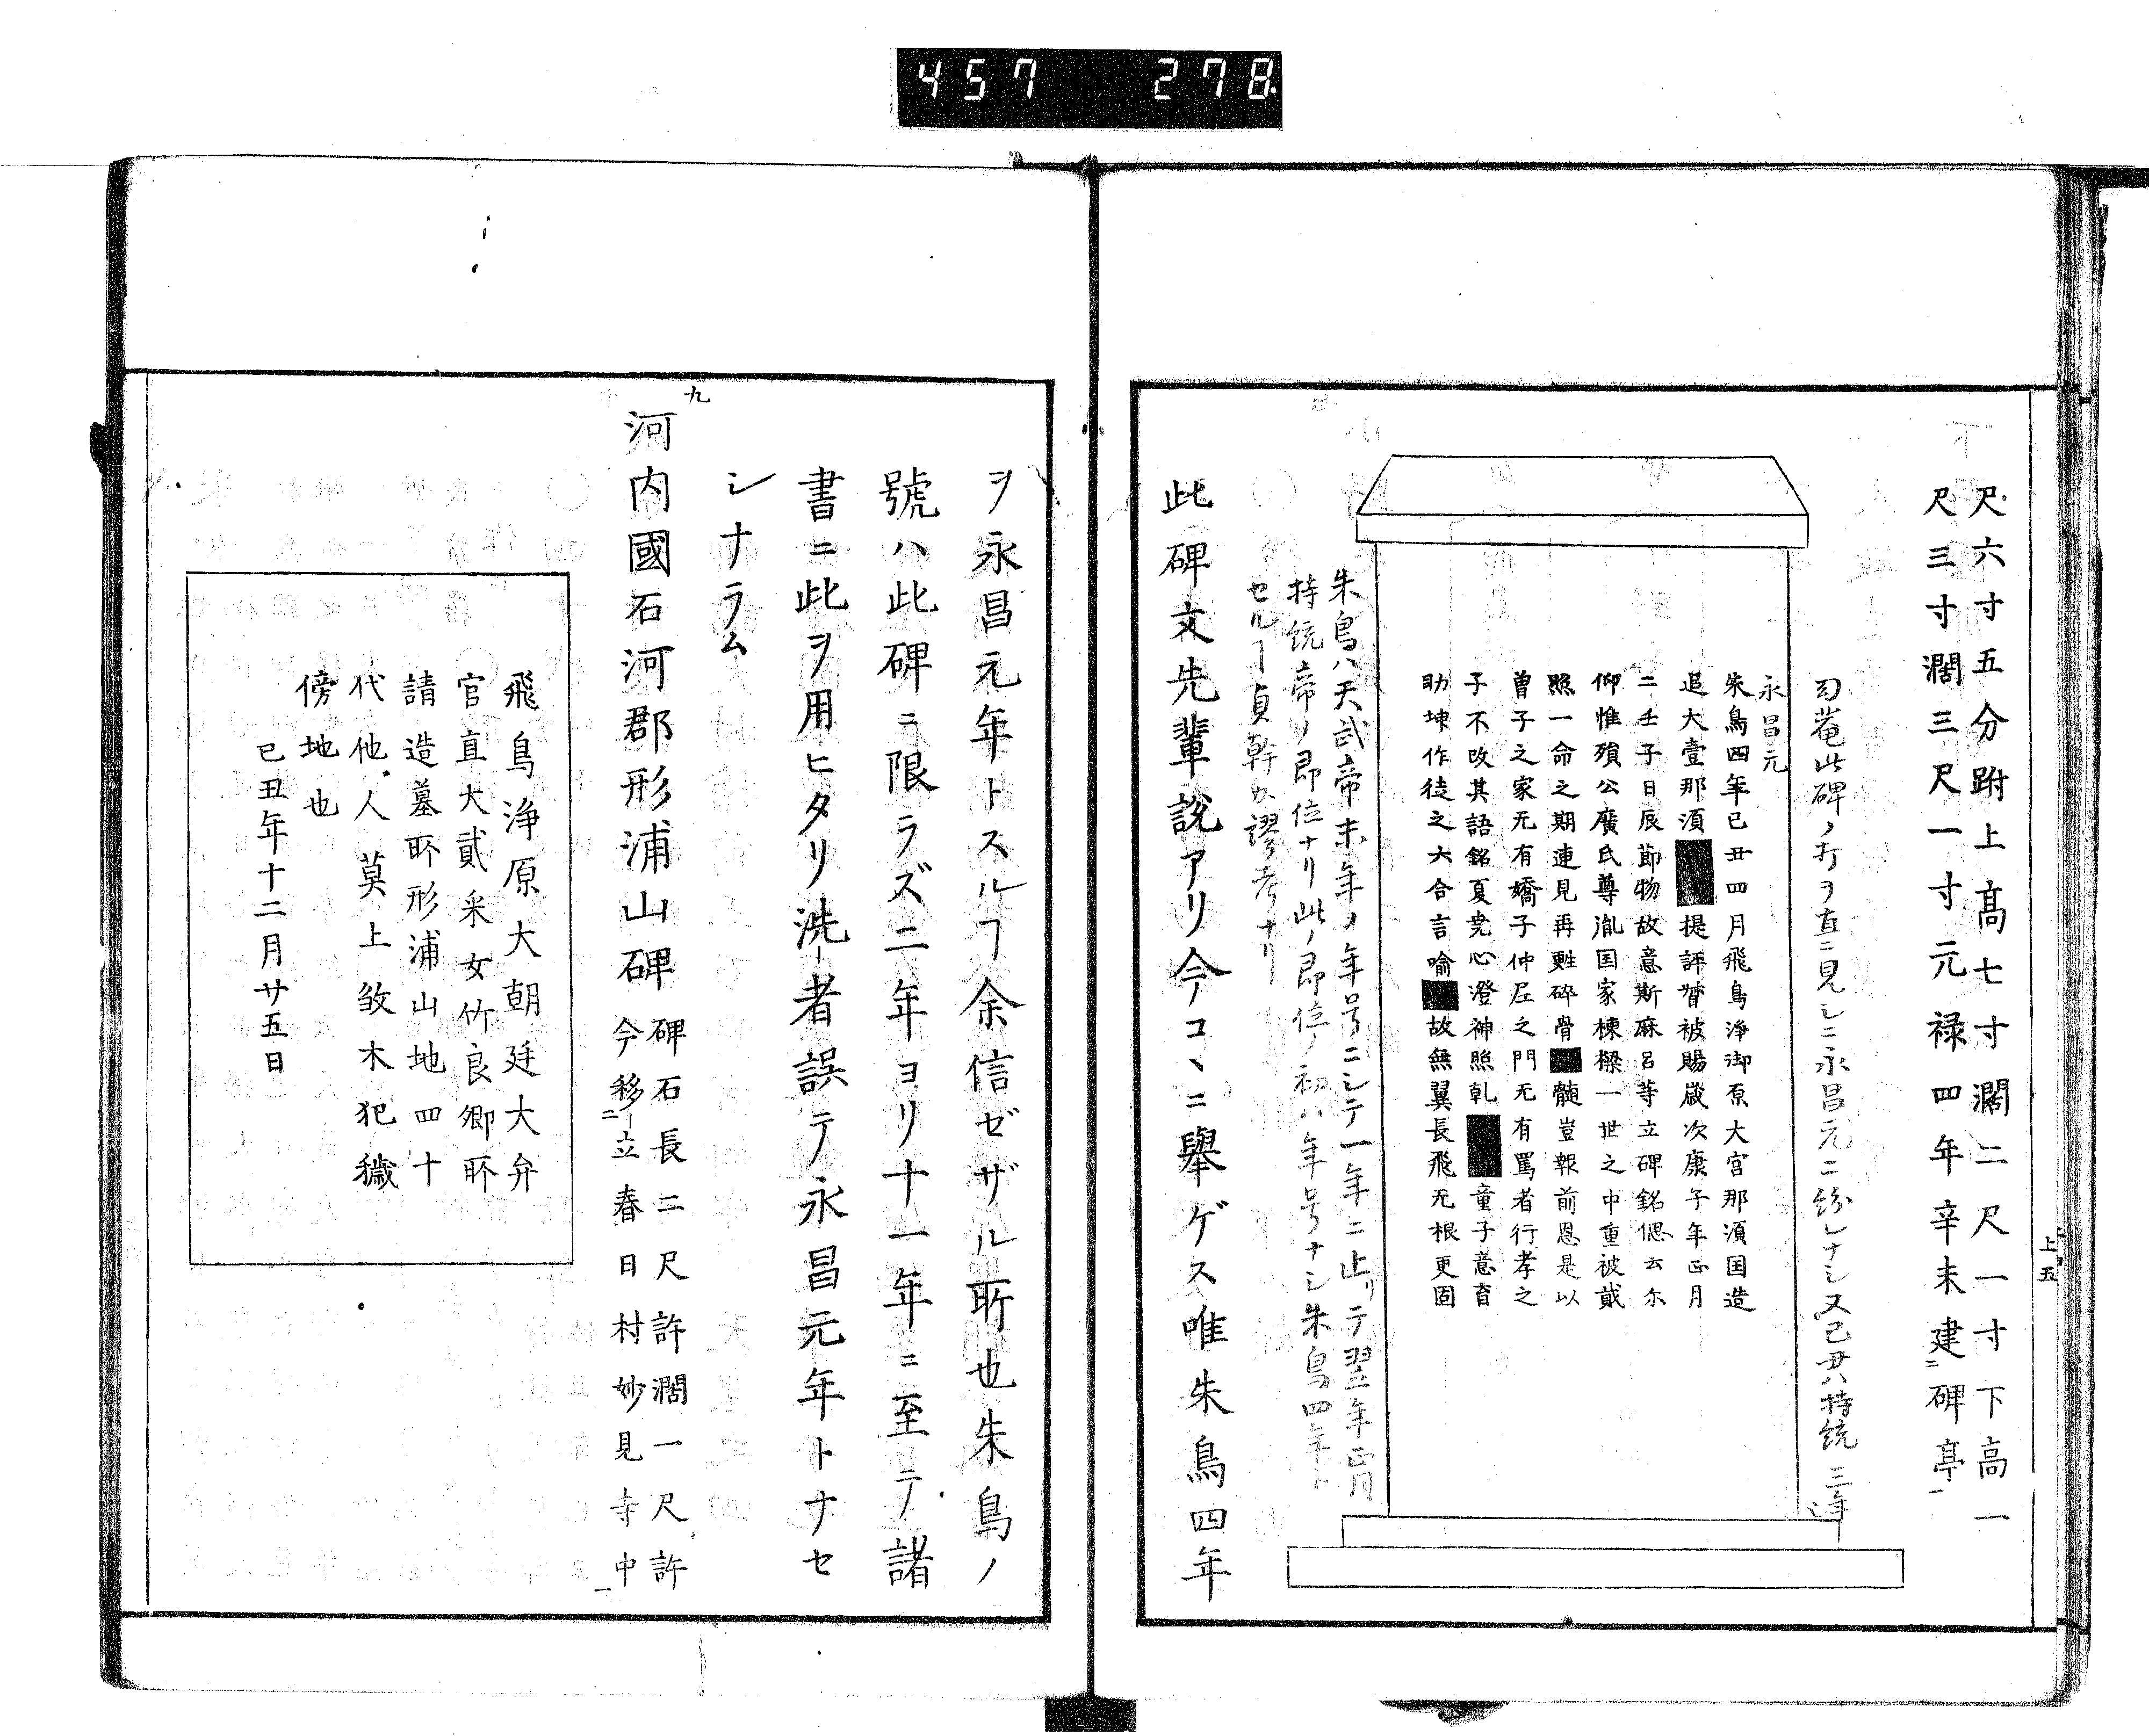 457 278
尺六寸五分跗上高七寸濶二尺一寸下高一
尺三寸濶三尺一寸元禄四年辛未建ニ碑亭一
上五
此碑ノ打ヲ直ニ見シニ永昌元ニ紛レナシ又己丑ハ持統三年
永昌元
朱鳥四年己丑四月飛鳥浄御原大宮那須国造
追大壹那須■提評督被賜歳次康子年正月
二壬子日辰節物故意斯麻呂等立碑銘偲云尓
仰惟殞公廣氏尊胤国家棟樑一世之中重被貳
照一命之期連見再甦碎骨■髄豈報前恩是以
曽子之家无有嬌子仲尼之門无有罵者行孝之
子不改其語銘夏尭心澄神照乹■童子意育
助坤作徒之大合言喻■故無翼長飛无根更固
朱鳥ハ天武帝末年ノ年号ニシテ一年ニ止リテ翌年正月
持統帝ノ即位ナリ此ノ即位ノ初ハ年号ナシ朱鳥四年ト
セルヿ貞幹カ謬考ナリ
此碑文先輩説アリ今コヽニ擧ゲス唯朱鳥四年
ヲ永昌元年トスルヿ余信ゼザル所也朱鳥ノ
號ハ此碑ニ限ラズ二年ヨリ十一年ニ至テノ諸
書ニ此ヲ用ヒタリ洗ー者誤テ永昌元年トナセ
シナラム
九
河内國石河郡形浦山碑
碑石長二尺許濶一尺許
今移ニ立春日村妙見寺中一
飛鳥浄原大朝廷大弁
官直大貳采女竹良卿所
請造墓所形浦山地四十
代他人莫上毀木犯穢
傍地也
己丑年十二月廿五日